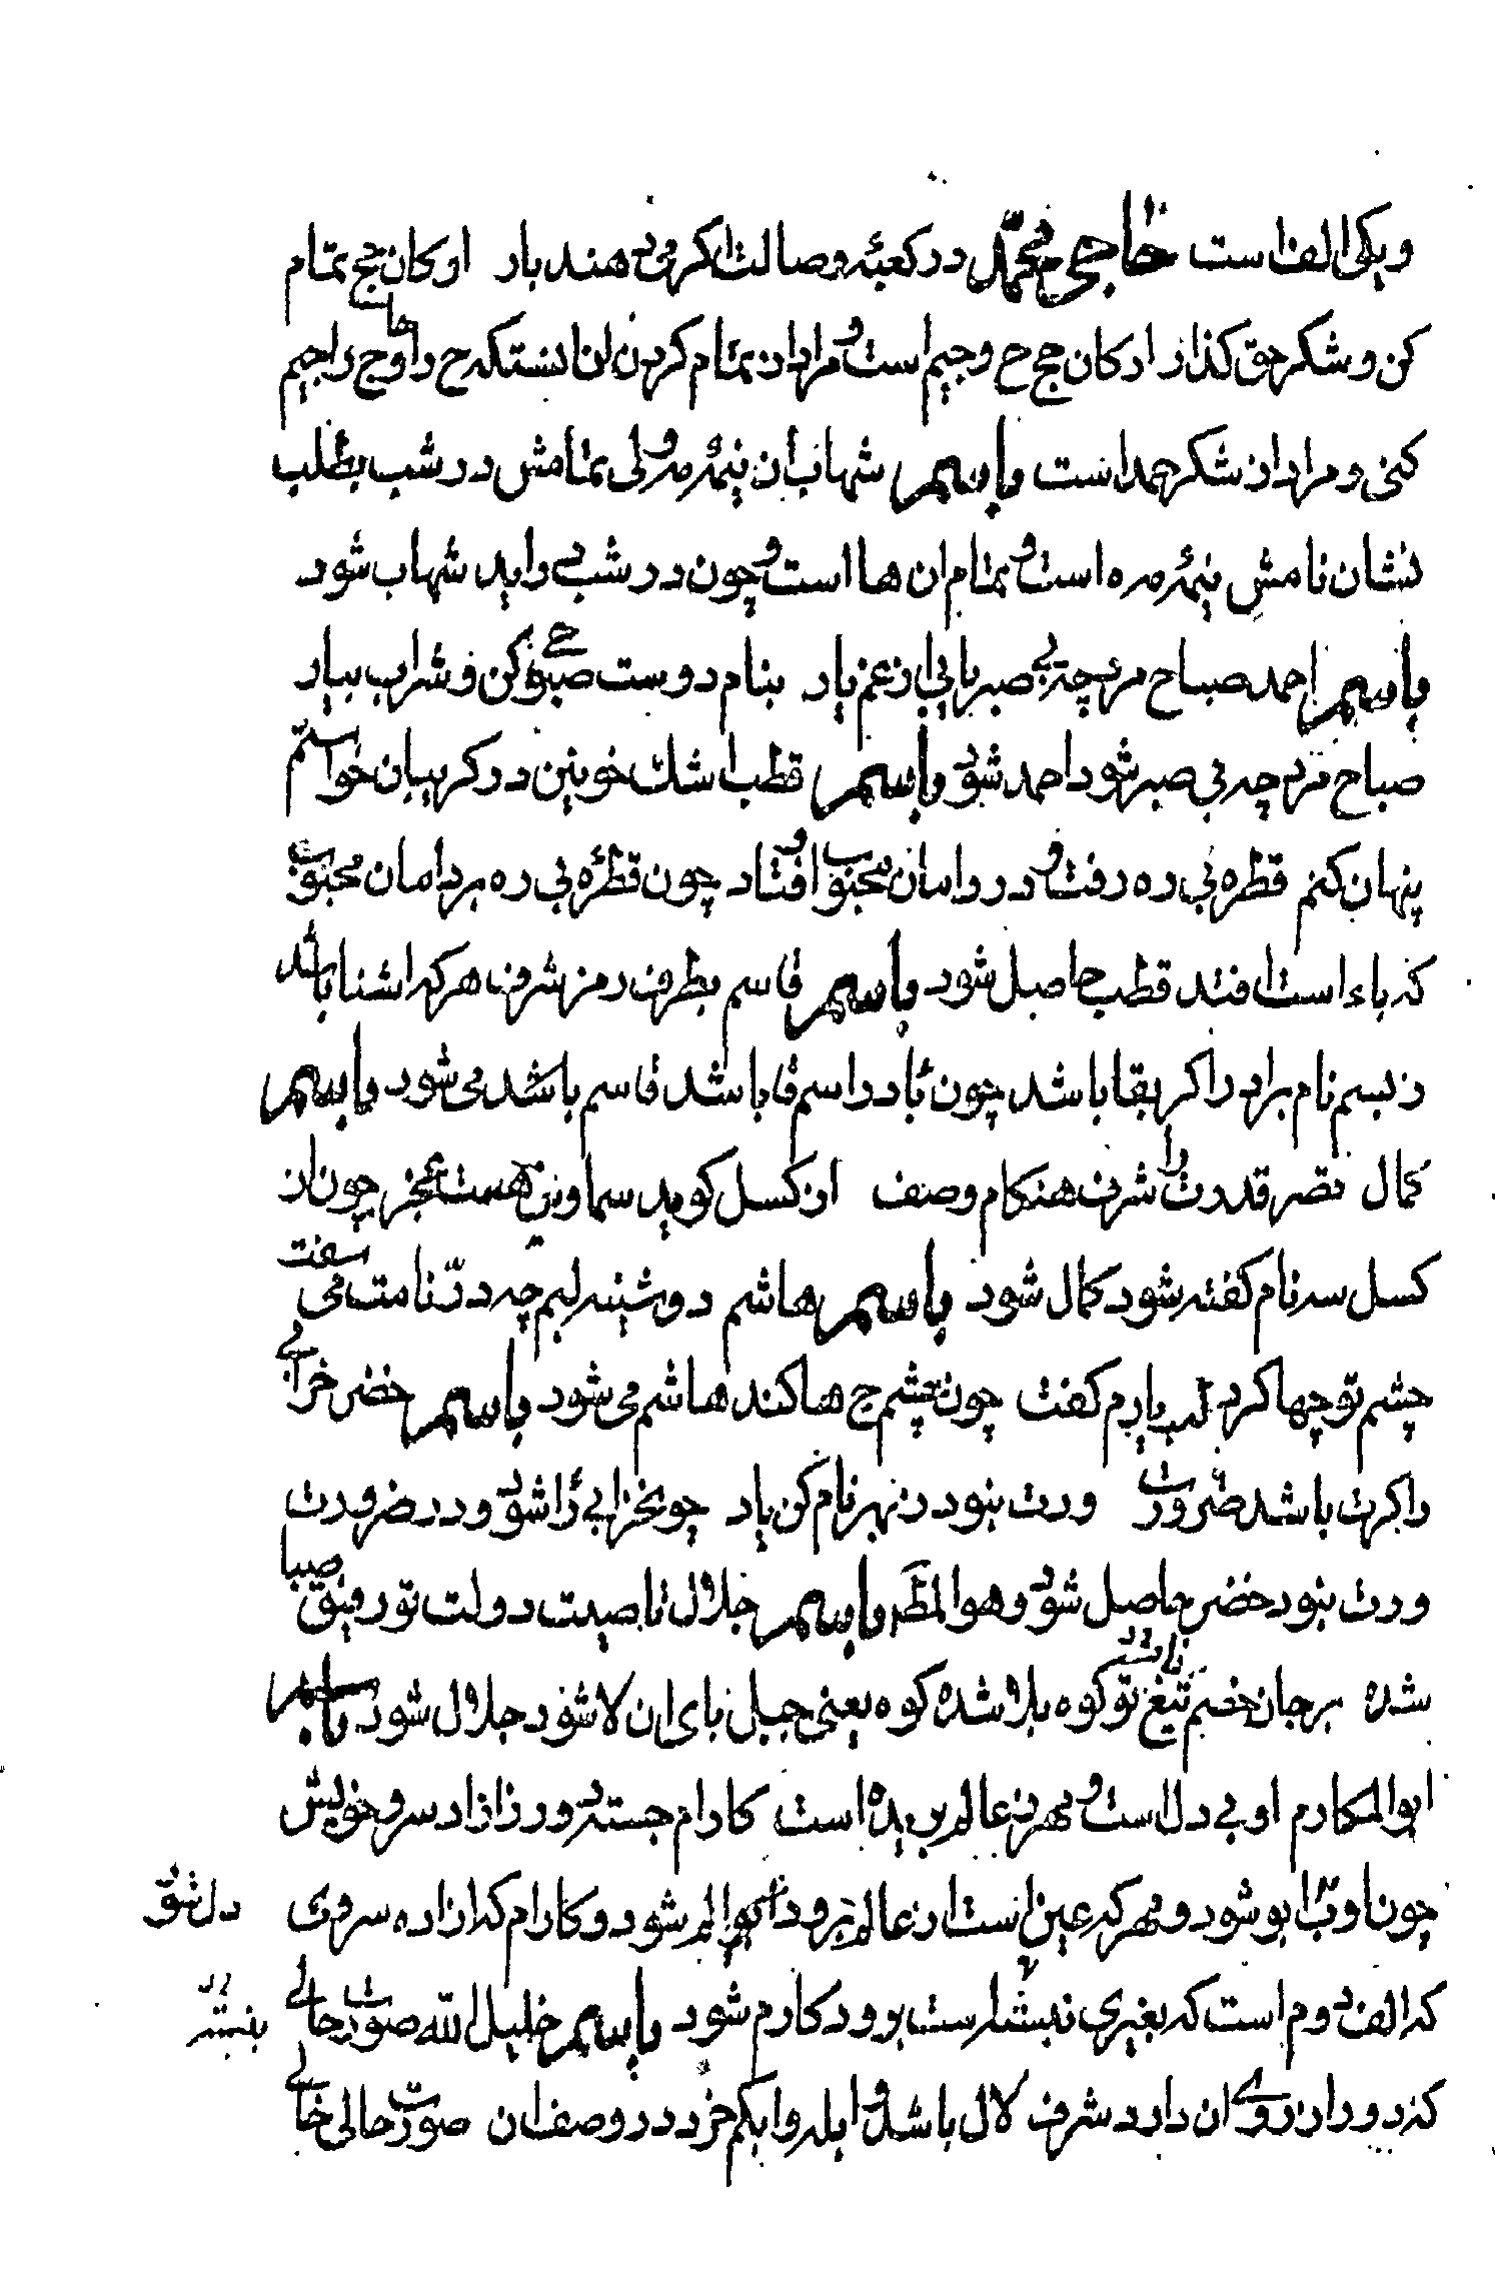 ویکی الف است حاجی محمد در کعبهٔ وصالت اگر می‌دهند بار ارکان حج تمام
کن و شکر حق کذار ارکان حج ح و جیم است و مراد از تمام کردن ان انستکه ح را حا و ج را جیم
کنی و مراد از شکر حمد است باسم شهاب ان نیمهٔ مه ولی تمامش در شب بطلب
نشان نامش نیمهٔ مه ه است و تمام ان ها است و چون در شب در اید شهاب شود
باسم احمد صباح مرد چه بی صبر یابی از غم یار بنام دوست صبوحی کن و شراب بیار
صباح مرد چه بی صبر شود احمد شود باسم قطب اشک خونین در کریبان خواستم
پنهان کنم قطره بی ره رفت و در دامان محبوب افتاد چون قطره بی ره بر دامان محبوب
که باء است افتد قطب حاصل شود باسم قاسم بطرف رمز شرف هر که اشنا باشد
ز بسم نام برارد اکر بقا باشد چون با در اسم قا باشد قاسم باشد می شود باسم
کمال قصر قدرت را شرف هنکام وصف از کسل کوید سماوین هست عجز چون از
کسل سر نام کفته شود کمال شود باسم هاشم دوشینه لبم چه در نامت می سفت
چشم تو چها کرد لب یارم کفت چون چشم چ ها کند هاشم می شود باسم خضر خرابی
را کرت باشد ضرورت ورت نبود ز بهر نام کن یاد چو بخرابی را شود و در ضرورت
ورت نبود خضر حاصل شود و هو المظهر باسم جلال تا صیت دولت تو رفیق صبا
شده بر جان خصم تیغ تو کوه بلا شده کوه یعنی جبل بای ان لا شود جلال شود باسم
ابو المکارم او بی دل است و مهر ز عالم بریده است کارام جسته و رزازاد سرو خویش
چون او با ابو شود و مهر که عین است از عالم برود ابو الم شود و کارام که ازاده سروی
دل شود
که الف دوم است که بغیری نبشارست برود کارم شود باسم خلیل الله صورت حالی
که دوران روی ان دارد شرف لال باشد و ابله و ابکم خرد در وصف ان صورت حالی خالی